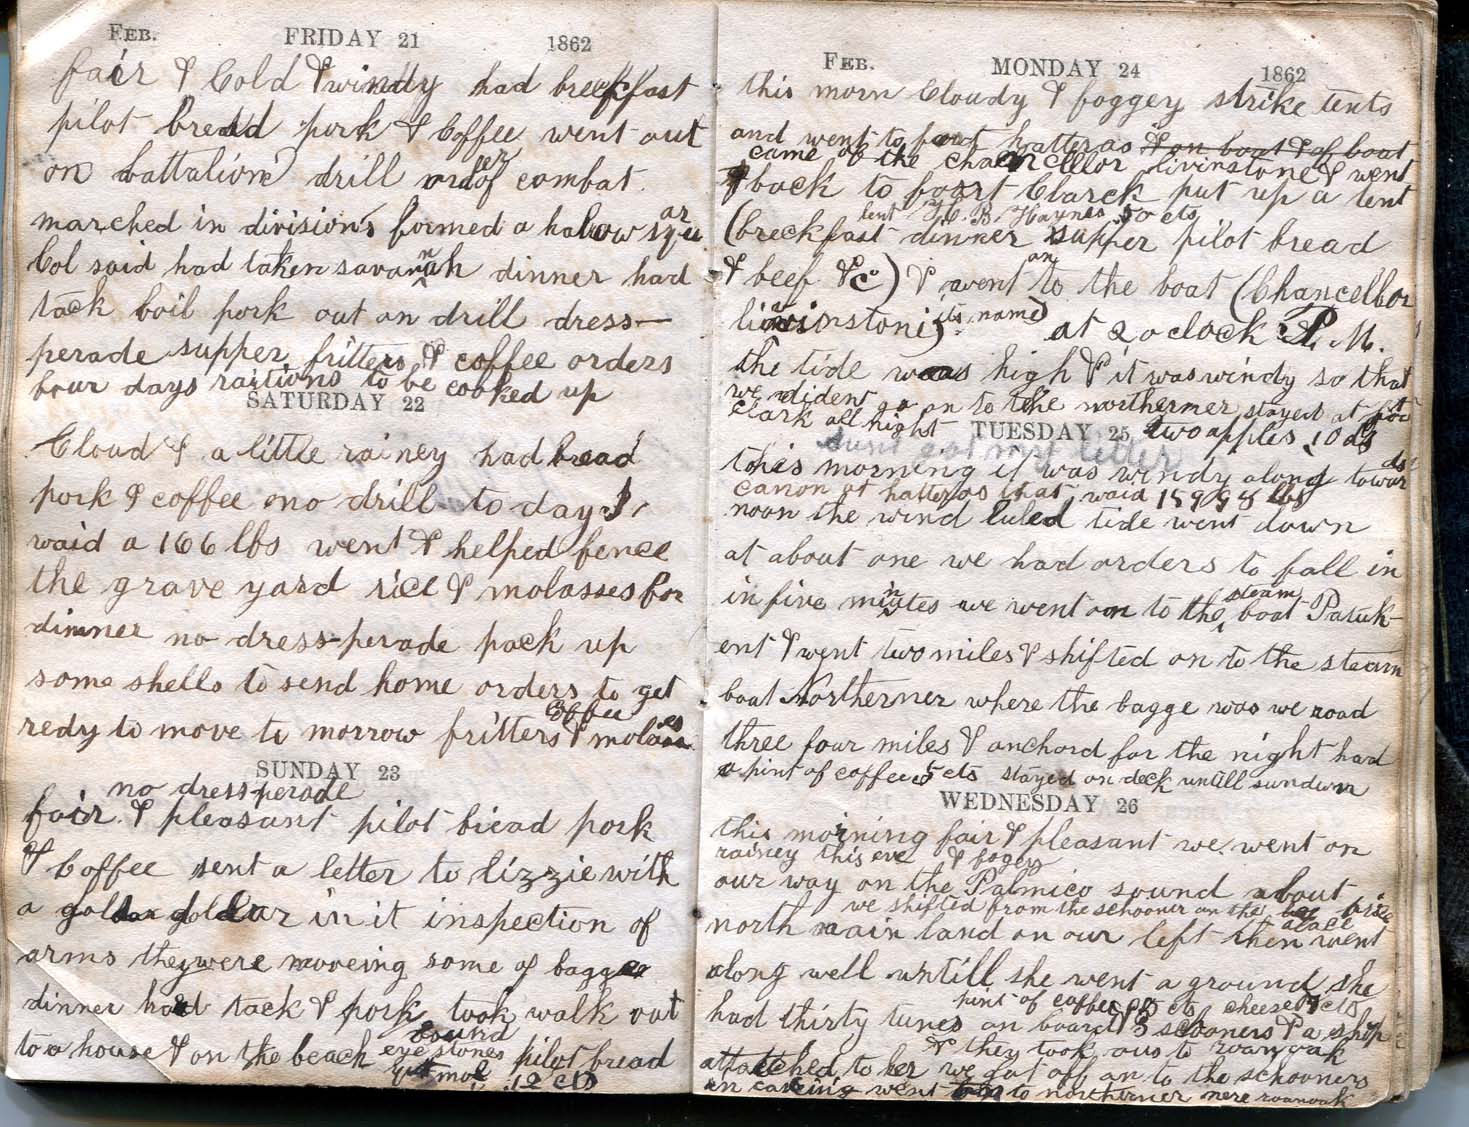 FEB. FRIDAY 21 1862
fair & Cold & windy had breckfast
pilot bread pork & Coffee went out
on battalion drill order of combat.
marched in divisions formed a halow squar
Col said had taken savannah dinner had
tack boil pork out on drill dress–
perade supper fritters & coffee orders
four days rastions to be cooked up
SATURDAY 22
Cloud & a little rainey had bread
pork & coffee no drill to day I
waid a 166 lbs went & helped fence
the grave yard rice & molasses for
dinner no dress-perade pack up
some shells to send home orders to get
redy to move to morrow fritters Coffee & molases
SUNDAY 23
no dress-perade
fair & pleasant pilot bread pork
& Coffee sent a letter to lizzie with
a gold dollar in it inspection of
arms they were mooveing some of bagge
dinner had tack & pork took walk out
to a house & on the beach found eye stones pilot bread
12 cts
FEB. MONDAY 24 1862
this morn Cloudy & foggey strike tents
and went to fort hatteras & on boat & of boat
came of the chancellor livinstone & went
back to foort Clarck put up a tent
lent J. B. Haynes 50 cts
(breckfast dinner supper pilot bread
& beef &c) & went on to the boat (Chancellor
livinstoni, its name) at 2 o clock P. M.
the tide was high & it was windy so that
we dident go on to the northerner stayed at fort
Clark all night two apples 10 cts
TUESDAY 25
sunt eat my letter
this morning it was windy along towards
canon at hatteras that waid 15998 lbs
noon the wind luled tide went down
at about one we had orders to fall in
in five minutes we went on to the steam boat Patuk-
ent & went two miles & shifted on to the steam
boat Northerner where the bagge was we road
three four miles & anchord for the night had
a pint of coffee 5 cts stayed on deck untill sundwn
WEDNESDAY 26
this morning fair & pleasant we went on
rainey this eve & fogey
our way on the Palmico sound about
we shifted from the schooner on the
north main land on our left then went
along well untill she went a ground she
pint of coffee 05 cts cheese 05 cts
had thirty tunes on board 3 schooners & a ship
& they took ous to roanoak
attatched to her we got off on to the schooners
went to northerner nere roanoak